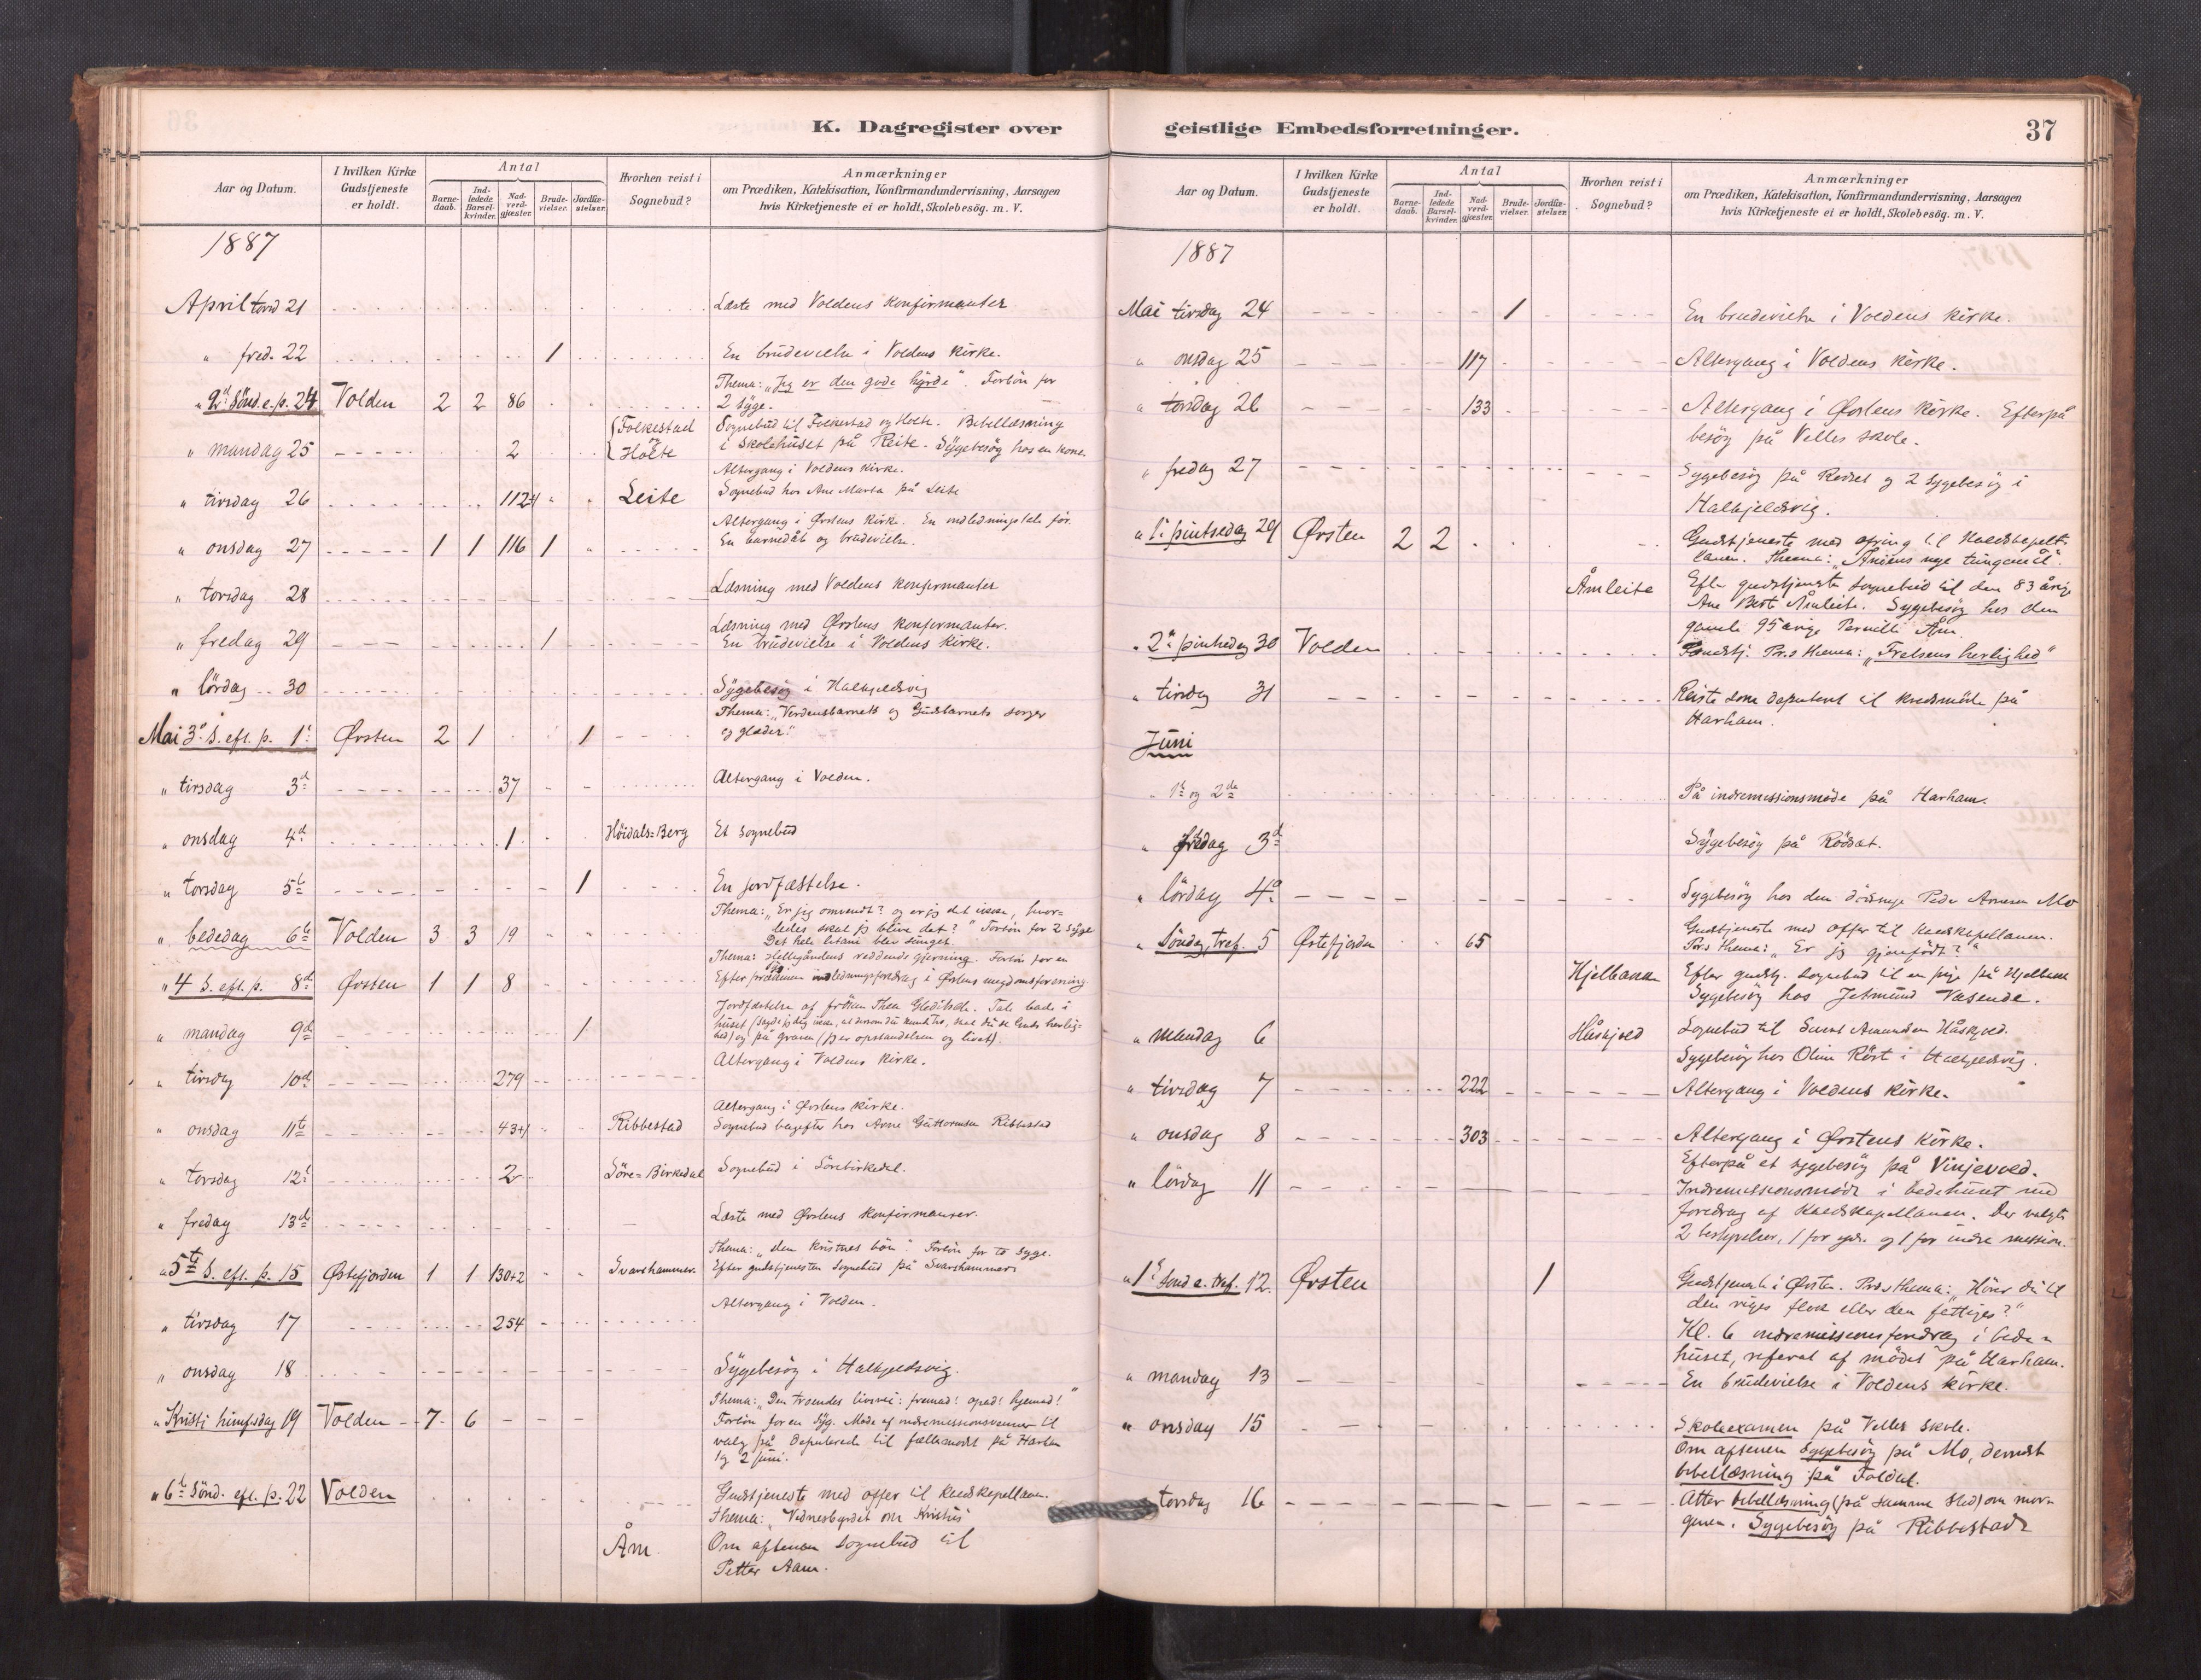 K. Dagregister over
Aar og Datum.
I hvilken Kirke Gudstjeneste er holdt.
Antal
Barne-daab.
Ind-ledede Barsel-kvinder.
Nad-verd-gjæster.
Brude-vielser.
Jordfæ-stelser.
Hvorhen reist i Sognebud?
Anmærkninger
om Prædiken, Katekisation, Konfirmandundervisning, Aarsagen
hvis Kirketjeneste ei er holdt, Skolebesög. m. V.
1887
April torsd 21 Læste med Voldens Konfirmanter
" fred. 22 1 En brudevielse i Voldens Kirke.
" 2d Sönd. e. p. 24 Volden 2 2 86 Thema: "Jeg er den gode hyrde". Forbön for
2 syge.
" mandag 25 2 Folkestad og Holte Sognebud til Folkestad og Holte. Bibellæsning
i Skolehuset på Reite. Sygebesög hos en kone.
" tirsdag 26 112+1 Leite Altergang i Voldens Kirke.
Sognebud hos Ane Marta på Leite
" onsdag 27 1 1 116 1 Altergang i Ørstens Kirke. En indledningstale för.
En barnedåb og brudevielse.
" torsdag 28 Læsning med Voldens konfirmanter
" fredag 29 1 Læsning med Ørstens konfirmanter.
En brudevielse i Voldens Kirke.
" lördag 30 Sygebesög i Halkjeldsvig
Mai 3d S. eft. p. 1t Ørsten 2 1 1 Thema: "Verdensbarnets og Gudsbarnets sorger
og glæder."
" tirsdag 3d 37 Altergang i Volden.
" onsdag 4d 1 Höidals=Berg Et sognebud
" torsdag 5t 1 En jordfæstelse.
" bededag 6t Volden 3 3 19 Thema: "Er jeg omvendt? og er jeg det ikke, hvor=
ledes skal jeg blive det?" Forbön for 2 syge
Det hele litani blev sunget.
" 4 S. eft. p. 8d Ørsten 1 1 8 Thema: Helligåndens reddende gjerning. Forbön for en
Efter prædiken indledningsforedrag i Ørstens ungdomsforening
" mandag 9d 1 Jordfæstelse af fröken Thea Gleditsch. Tale både i
huset (sagde jeg dig ikke, at dersom du kunde tro, skal du se Guds herlig=
hed) og på graven (jeg er opstandelsen og livet).
" tirsdag 10d 279 Altergang i Voldens Kirke.
" onsdag 11te 43+1 Ribbestad Altergang i Ørstens Kirke.
Sognebud bagefter hos Arne Guttormsen Ribbestad
" torsdag 12t 2 Söre=Birkedal Sognebud i Sörebirkedal.
" fredag 13de Læste med Ørstens konfirmanter.
" 5te S. eft. p. 15 Østefjorden 1 1 130+2 Svarthammer. Thema: "den kristnes bön". Forbön for to syge.
Efter gudstjenesten sognebud på Svarthammer
" tirsdag 17 254 Altergang i Volden.
" onsdag 18 Sygebesög i Halkjeldsvig.
" Kristi himfsdag 19 Volden 7 6 Thema: "Den troendes livsvei: fremad! opad! hjemad!"
Forbön for en syg. Möde af indremissionsvenner til
valg på deputerede til fællesmödet på Harham
1 og 2 juni.
" 6te Sönd. eft. p. 22 Volden Gudstjeneste med offer til Kaldskapellanen.
Thema: "Vidnesbyrdet om Kristus"
Åm Om aftenen Sognebud til
Petter Aam.
geistlige Embedsforretninger.
37
Aar og Datum.
I hvilken Kirke Gudstjeneste er holdt.
Antal
Barne-daab.
Ind-ledede Barsel-kvinder.
Nad-verd-gjæster.
Brude-vielser.
Jordfæ-stelser.
Hvorhen reist i Sognebud?
Anmærkninger
om Prædiken, Katekisation, Konfirmandundervisning, Aarsagen
hvis Kirketjeneste ei er holdt, Skolebesög. m. V.
1887
Mai tirsdag 24 1 En brudevielse i Voldens Kirke.
" onsdag 25 117 Altergang i Voldens Kirke.
" torsdag 26 133 Altergang i Ørstens Kirke. Efterpå
besög på Velles skole.
" fredag 27 Sygebesög på Rødset og 2 Sygebesög i
Halkjeldsvig.
" 1ste pintsedag 29 Ørsten 2 2 Gudstjeneste med ofring til Kaldskapel=
lanen. Thema: "Åndens nye tungemål".
Åmleite Efter gudstjeneste sognebud til den 83 årige
Ane Berte Åmleite. Sygebesög hos den
gamle 95 årige Pernille Åm.
" 2den pintsedag 30 Volden Gudstj. Præs thema: "Frelsens herlighed"
" tirsdag 31 Reiste som deputeret til Kredsmöde på
Harham.
Juni
" 1ste og 2de På indremissionsmöde på Harham.
" fredag 3d Sygebesög på Rödsæt.
" lördag 4d Sygebesög hos den dödssyge Peder Arnesen Mo
" Söndag tref. 5 Østefjorden 65 Gudstjeneste med offer til Kaldskapellanen.
Præs thema: "Er jeg gjenfödt?"
Hjelbakke Efter gudstj. sognebud til en pige på Hjelbakke
Sygebesög hos Jetmund Vasende.
" mandag 6 Håskjold Sognebud til Sivert Amundsen Håskjold.
Sygebesög hos Oline Röst i Halkjeldsvig.
" tirsdag 7 222 Altergang i Voldens Kirke.
" onsdag 8 303 Altergang i Ørstens Kirke.
Efterpå et sygebesög på Vinjevold.
" lördag 11 Indremissionsmöde i bedehuset med
foredrag af Kaldskapellanen. Der valgtes
2 bestyrelser, 1 for ydr. og 1 for indre mission.
" 1ste Sönd e. tref. 12. Ørsten 1 Gudstjeneste i Ørsten. Præs thema: "Hörer du til
den riges flok eller den fattiges?"
Kl. 6 indremissionsforedrag i bede=
huset, referat af mödet på Harham.
" mandag 13 En brudevielse i Voldens Kirke.
" onsdag 15 Skoleexamen på Velles Skole.
Om aftenen Sygebesög på Mo, dernæst
bibellæsning på Foldal.
torsdag 16 Atter bibellæsning (på samme sted) om mor=
genen. Sygebesög på Ribbestad